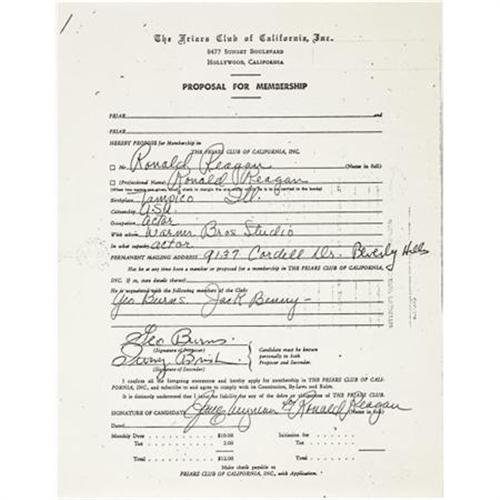 The Friars Club of California, Inc.
8477 SUNSET BOULEVARD
HOLLYWOOD, CALIFORNIA
PROPOSAL FOR MEMBERSHIP
FRIAR and
FRIAR
HEREBY PROPOSE for Membership in
THE FRIARS CLUB OF CALIFORNIA, INC.
Mr. Ronald Reagan (Name in full)
(Professional Name) Ronald Reagan
Birthplace Tampico Ill.
Citizenship USA
Occupation actor
With whom Warner Bros Studio
In what capacity actor
PERMANENT MAILING ADDRESS 9137 Cordell Dr. Beverly Hills
Has he at any time been a member or proposed for a membership in THE FRIARS CLUB OF CALIFORNIA,
INC. If so, state details
He is acquainted with the following members of the Club:
Geo Burns - Jack Benny -
Geo Burns
(Signature of Proposer)
(Signature of Seconder)
Candidate must be known
personally to both
Proposer and Seconder.
I confirm all the foregoing statements and hereby apply for membership in THE FRIARS CLUB OF CALI-
FORNIA, INC., and subscribe to and agree to comply with its Constitution, By-Laws and Rules.
It is distinctly understood that I am not liable for any of the debts or obligations of THE FRIARS CLUB.
SIGNATURE OF CANDIDATE Jane Wyman for Ronald Reagan
Dated
Monthly Dues $10.00 Initiation fee $
Tax 2.00 Tax
Total $12.00 Total
Make check payable to
FRIARS CLUB OF CALIFORNIA, INC., with Application.